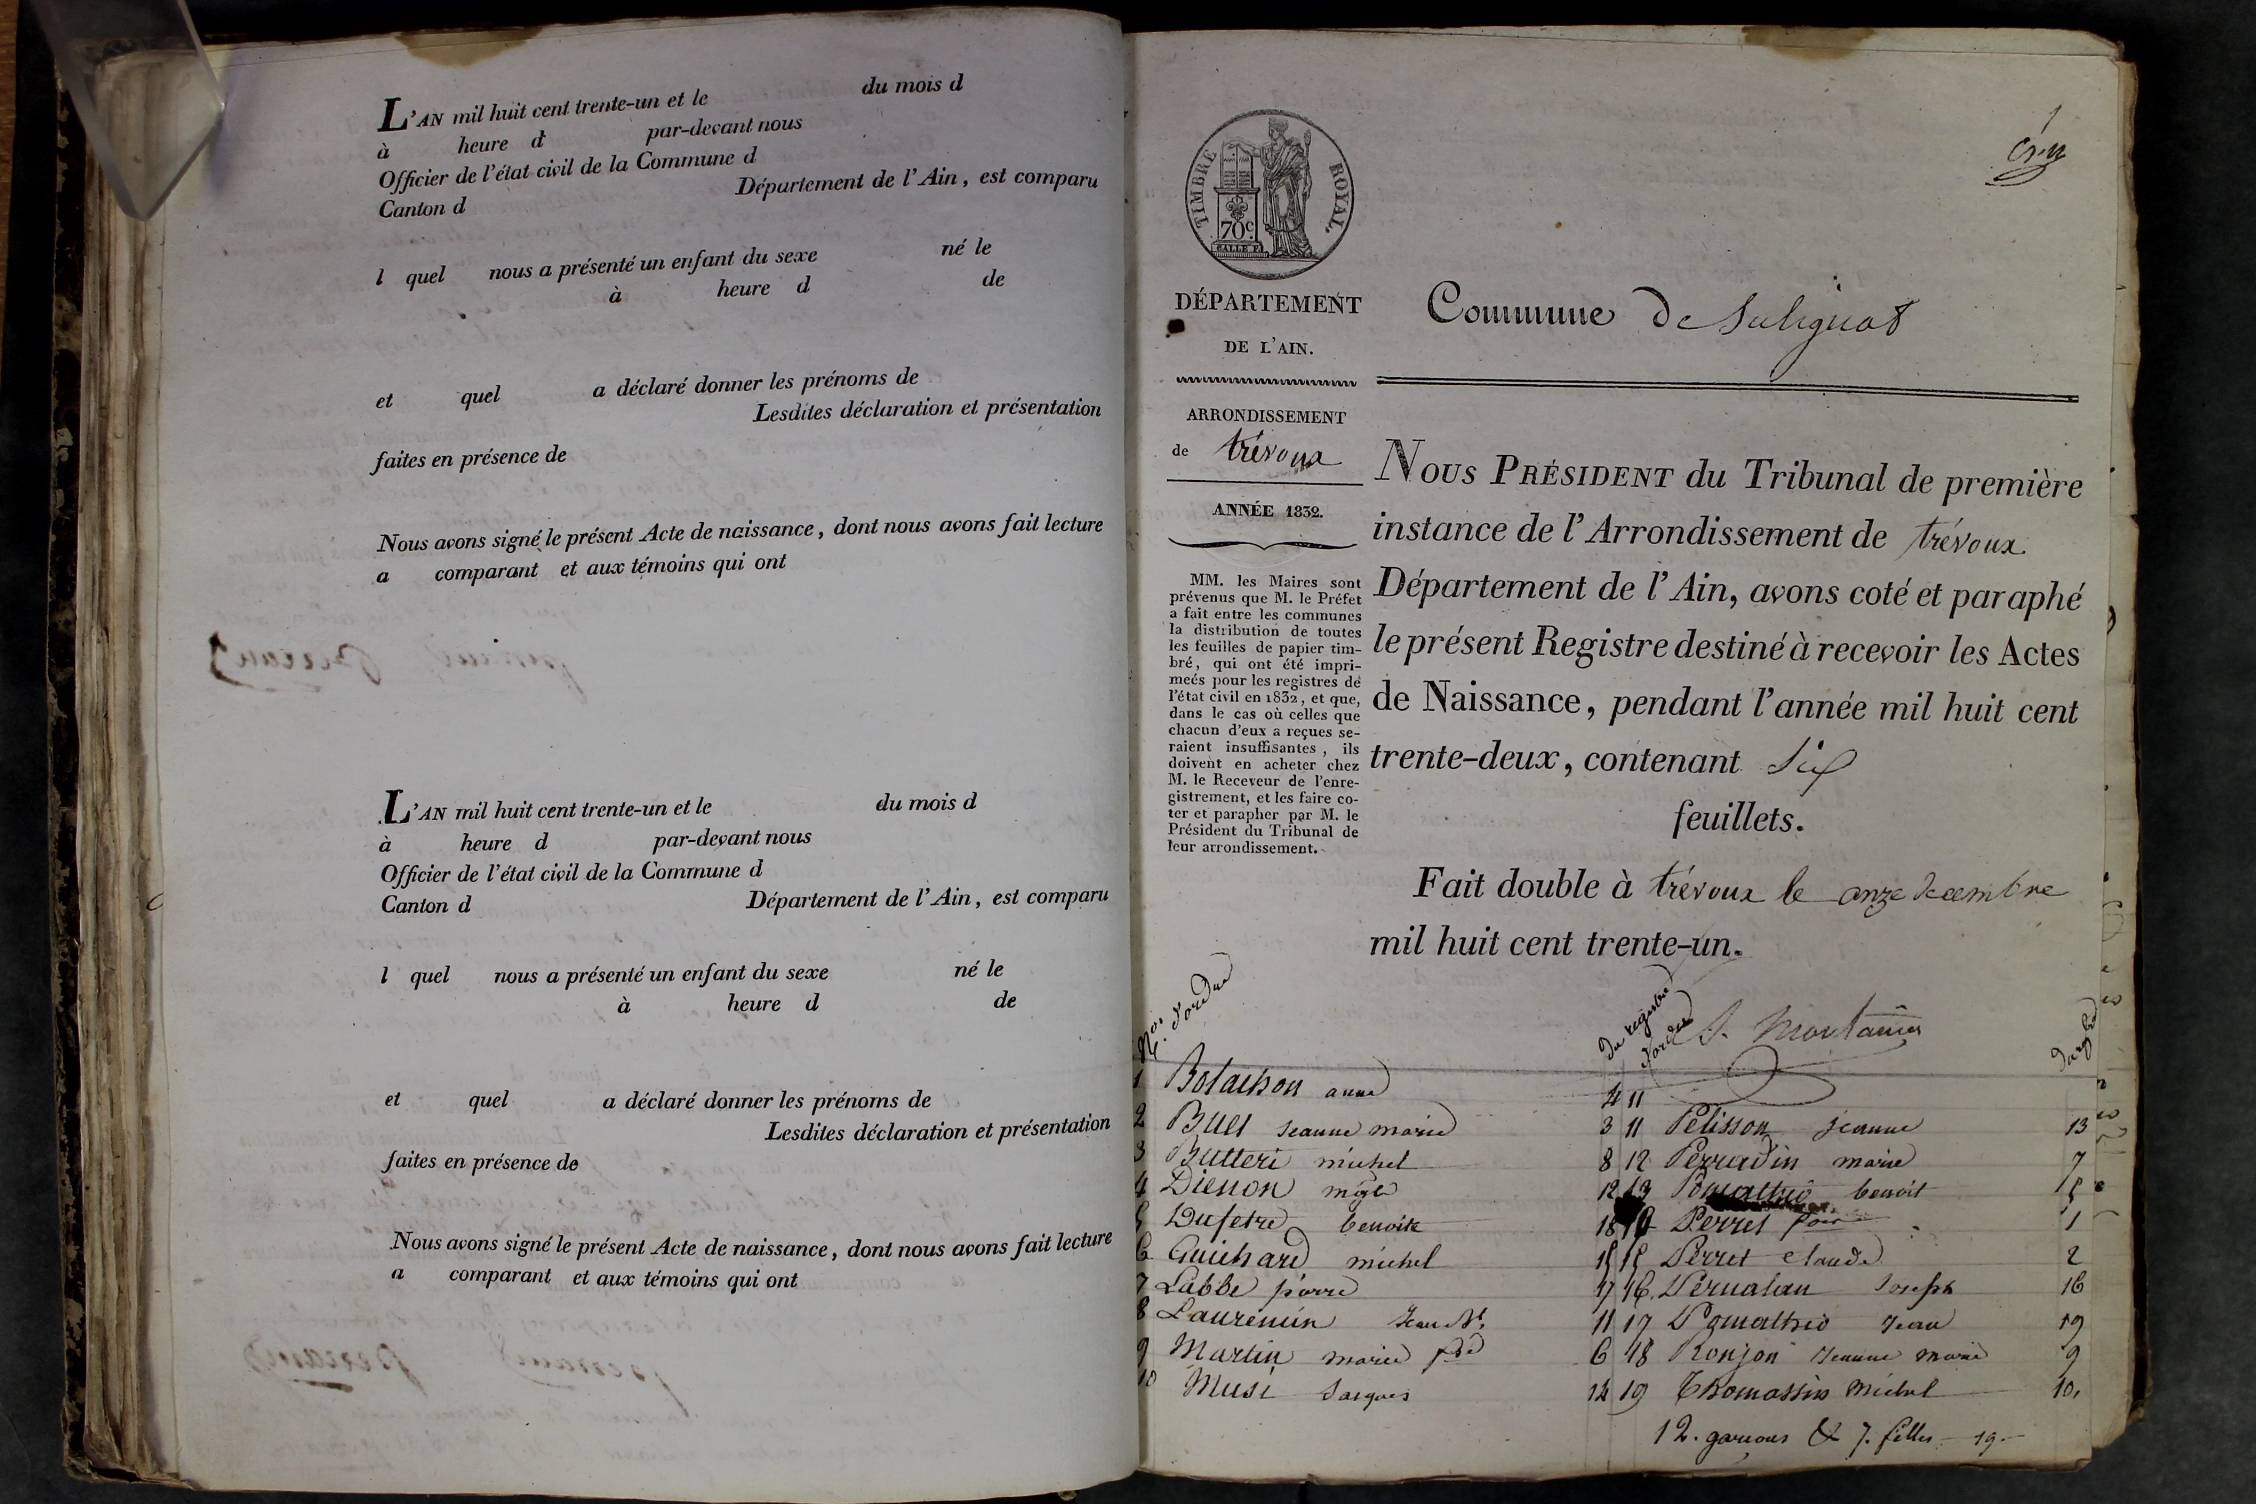 L'AN mil huit cent trente-un et le du mois d
à heure d par-devant nous
Officier de l'état civil de la Commune d
Canton d Département de l'Ain, est comparu
l quel nous a présenté un enfant du sexe né le
à heure d de
et quel a déclaré donner les prénoms de
Lesdites déclaration et présentation
faites en présence de
Nous avons signé le présent Acte de naissance, dont nous avons fait lecture
a comparant et aux témoins qui ont
L'AN mil huit cent trente-un et le du mois d
à heure d par-devant nous
Officier de l'état civil de la Commune d
Canton d Département de l'Ain, est comparu
l quel nous a présenté un enfant du sexe né le
à heure d de
et quel a déclaré donner les prénoms de
Lesdites déclaration et présentation
faites en présence de
Nous avons signé le présent Acte de naissance, dont nous avons fait lecture
a comparant et aux témoins qui ont
1
TIMBRE ROYAL.
70c
DÉPARTEMENT
DE L'AIN.
ARRONDISSEMENT
de trévoux
ANNÉE 1832.
MM. les Maires sont
prévenus que M. le Préfet
a fait entre les communes
la distribution de toutes
les feuilles de papier tim-
bré, qui ont été impri-
meés pour les registres de
l'état civil en 1832, et que,
dans le cas où celles que
chacun d'eux a reçues se-
raient insuffisantes, ils
doivent en acheter chez
M. le Receveur de l'enre-
gistrement, et les faire co-
ter et parapher par M. le
Président du Tribunal de
leur arrondissement.
Commune de Sulignat
NOUS PRÉSIDENT du Tribunal de première
instance de l'Arrondissement de trévoux
Département de l'Ain, avons coté et paraphé
le présent Registre destiné à recevoir les Actes
de Naissance, pendant l'année mil huit cent
trente-deux, contenant Six
feuillets.
Fait double à trévoux le onze decembre
mil huit cent trente-un.
Nos d'ordre
du registre
d'ordre
1 Bolachon anne 4
2 Buet Jeanne marie 3
3 Butteri michel 8
4 Dienon 12
5 Dufetre benoite 18
6 Guichard michel 15
7 Labbe pierre 17
8 Laurencin Jean Bt. 11
9 Martin marie 6
10 Musi Jacques 14
11
11 Pelisson Jeanne 13
12 Perradin marie 7
13 Pomathio benoit 5
Perret 1
15 Perret claude 2
16. Joseph 16
17 Pomathio Jean 19
18 Ronjon Jeanne marie 9
19 Thomassin michel 10.
12. garcons & 7. filles 19.